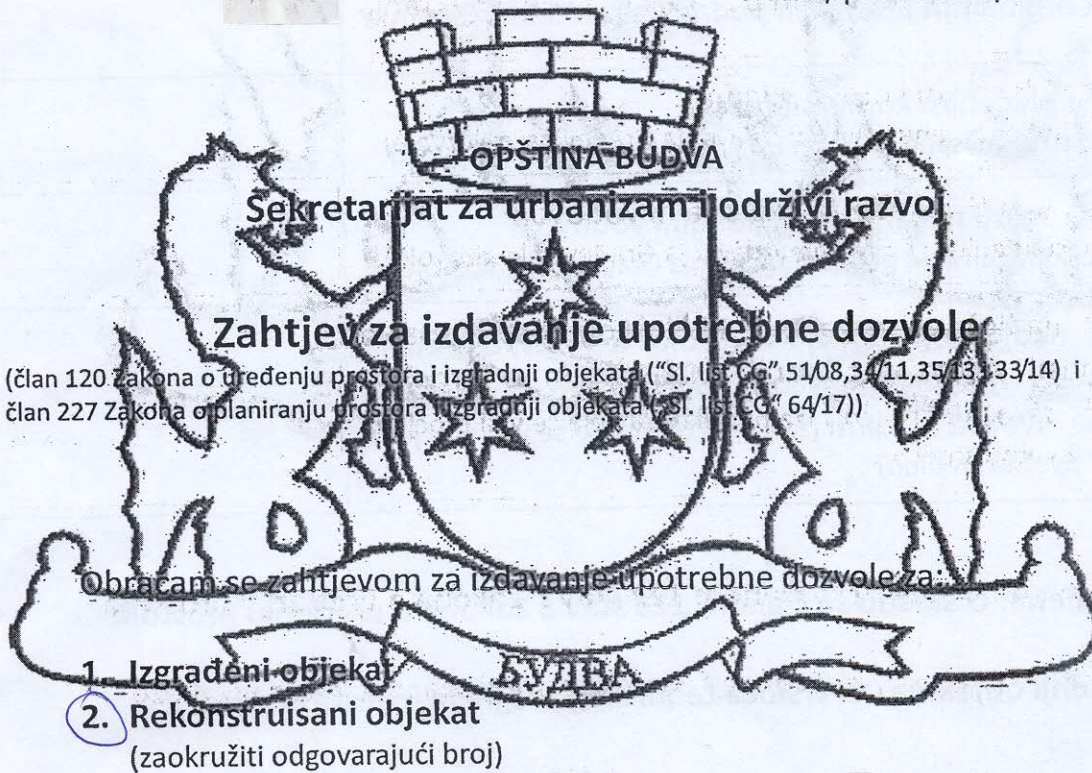 OPŠTINA BUDVA
Sekretarijat za urbanizam i održivi razvoj
Zahtjev za izdavanje upotrebne dozvole
(član 120 Zakona o uređenju prostora i izgradnji objekata ("Sl. list CG" 51/08,34/11,35/13 i 33/14) i
član 227 Zakona o planiranju prostora i izgradnji objekata („Sl. list CG“ 64/17))
Obraćam se zahtjevom za izdavanje upotrebne dozvole za:
1. Izgrađeni objekat
БУДВА
2. Rekonstruisani objekat
(zaokružiti odgovarajući broj)